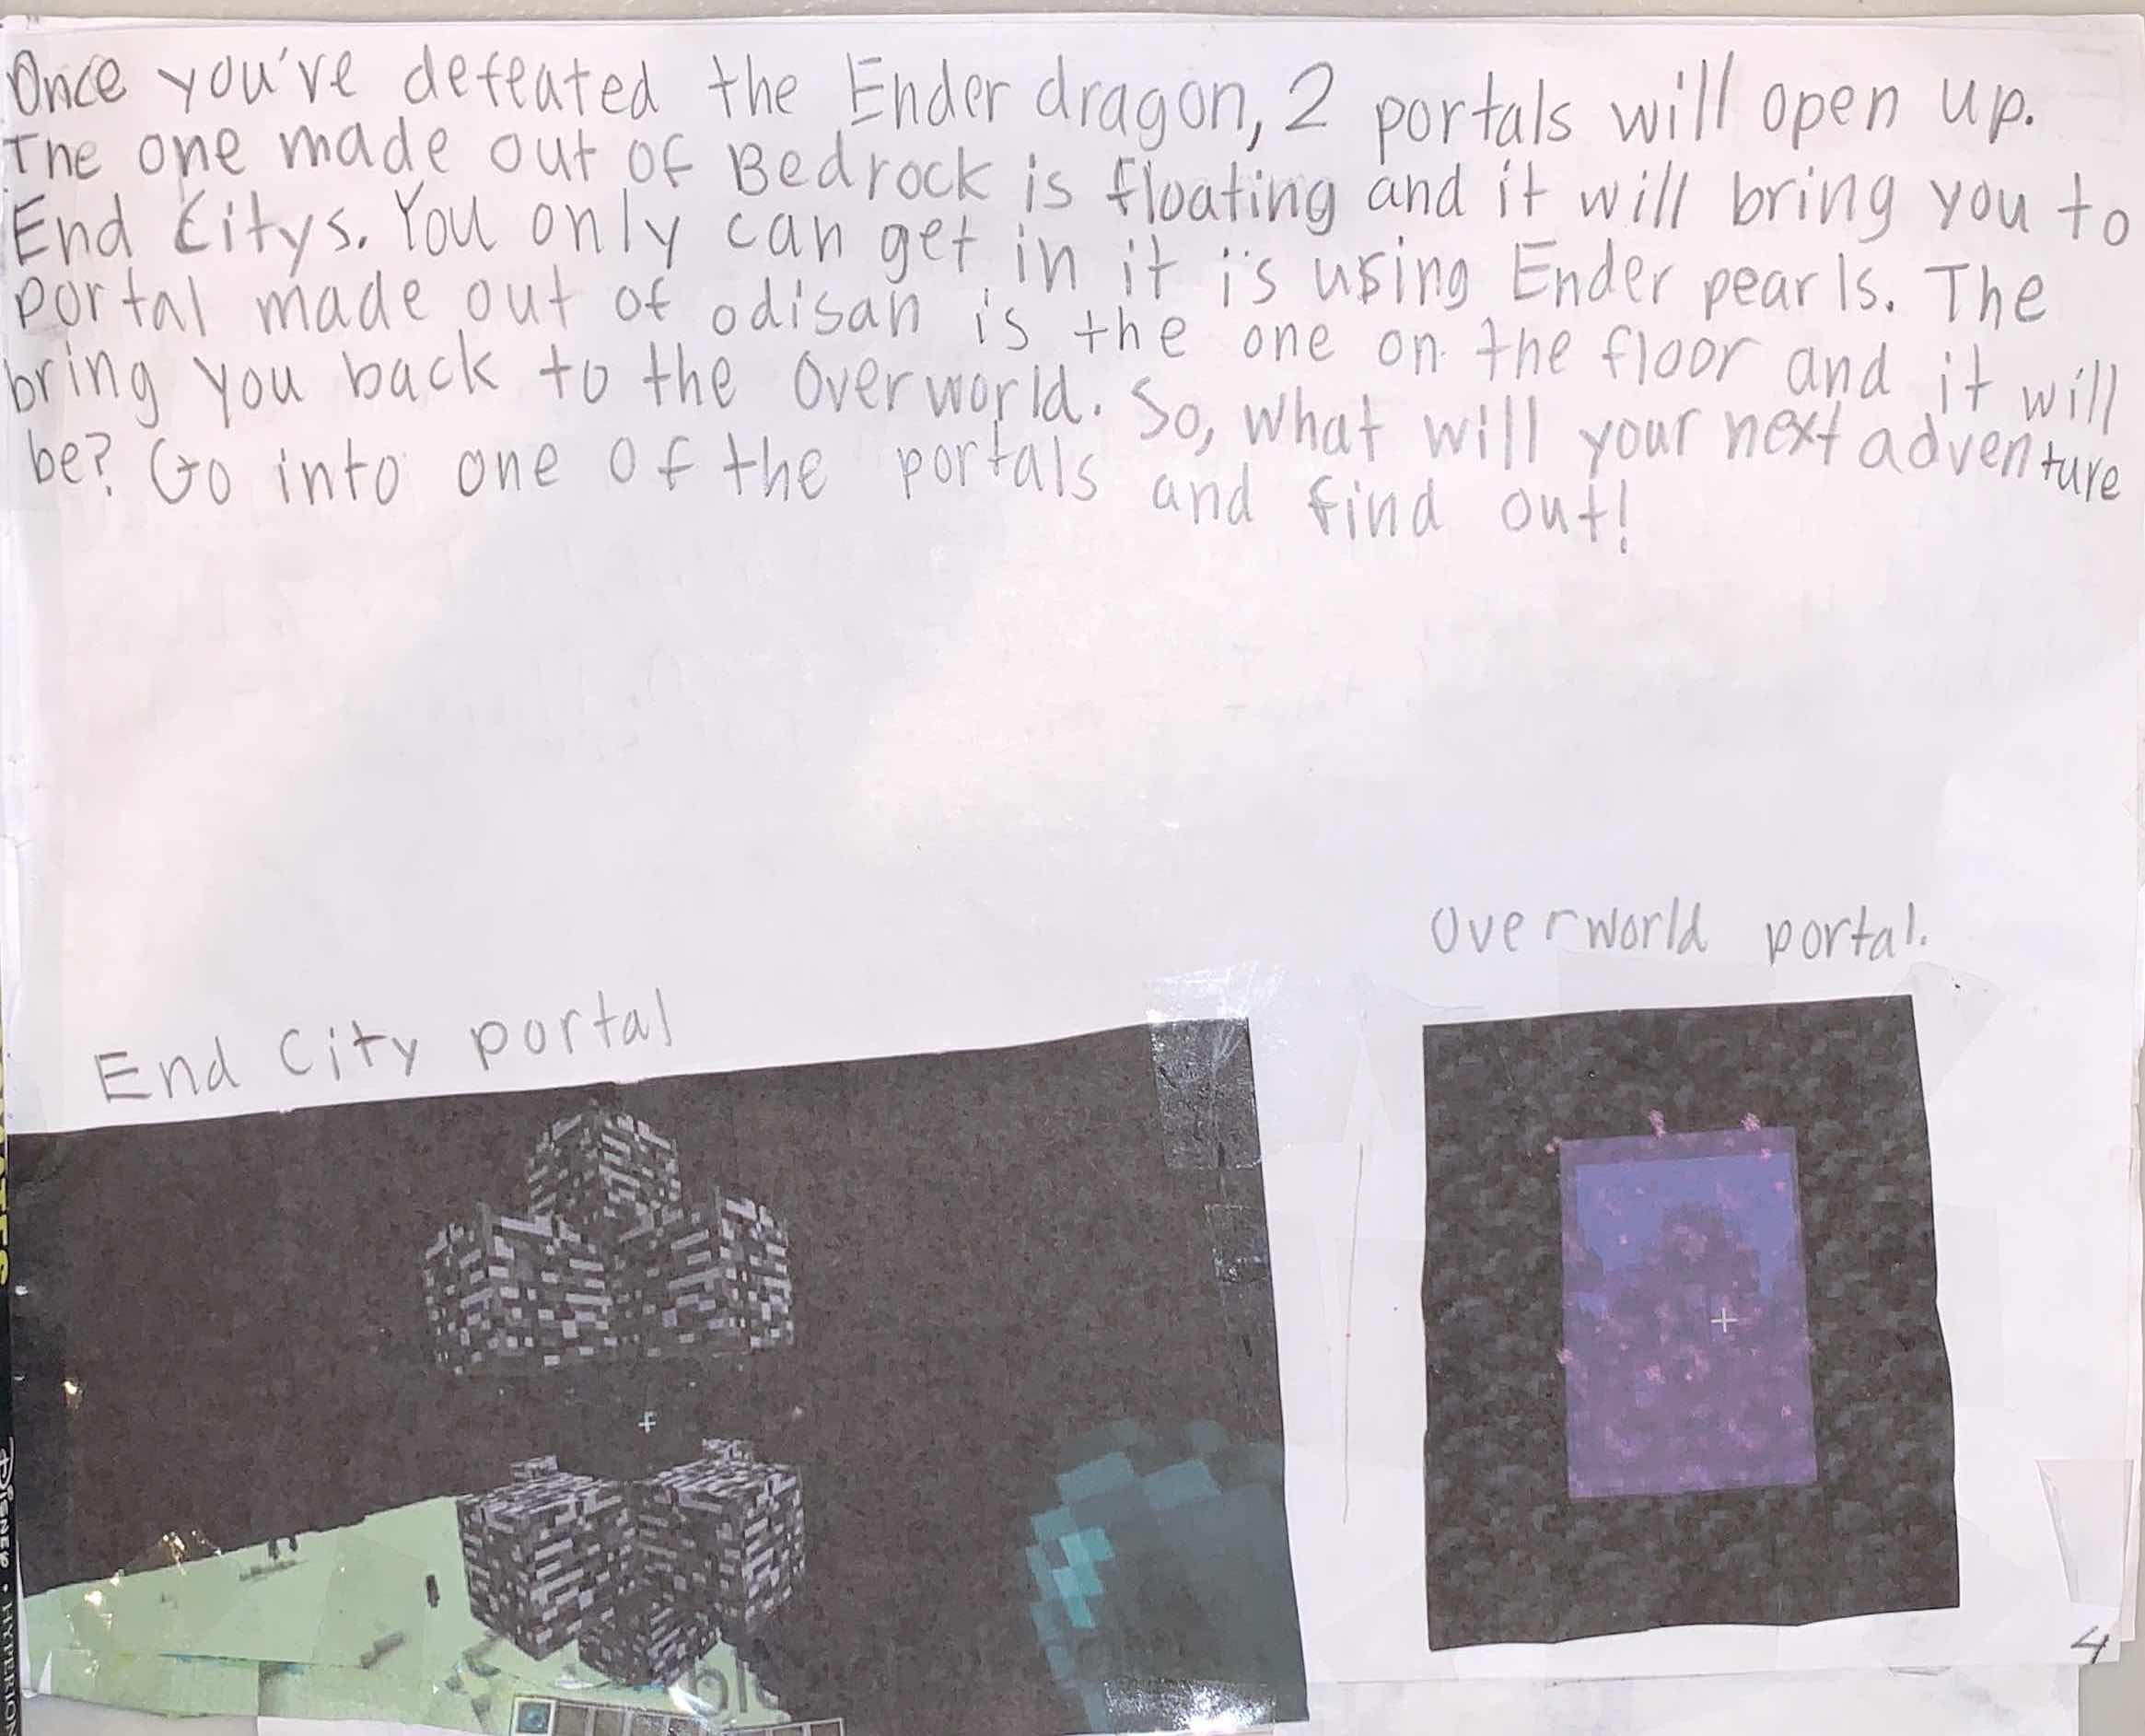 Once you've defeated the Ender dragon, 2 portals will open up.
The one made out of Bedrock is floating and it will bring you to
End Citys. You only can get in it is using Ender pearls. The
portal made out of odisan is the one on the floor and it will
bring you back to the Overworld. So, what will your next adventure
be? Go into one of the portals and find out!
Overworld portal.
End City portal
4
Disney • HYPERION